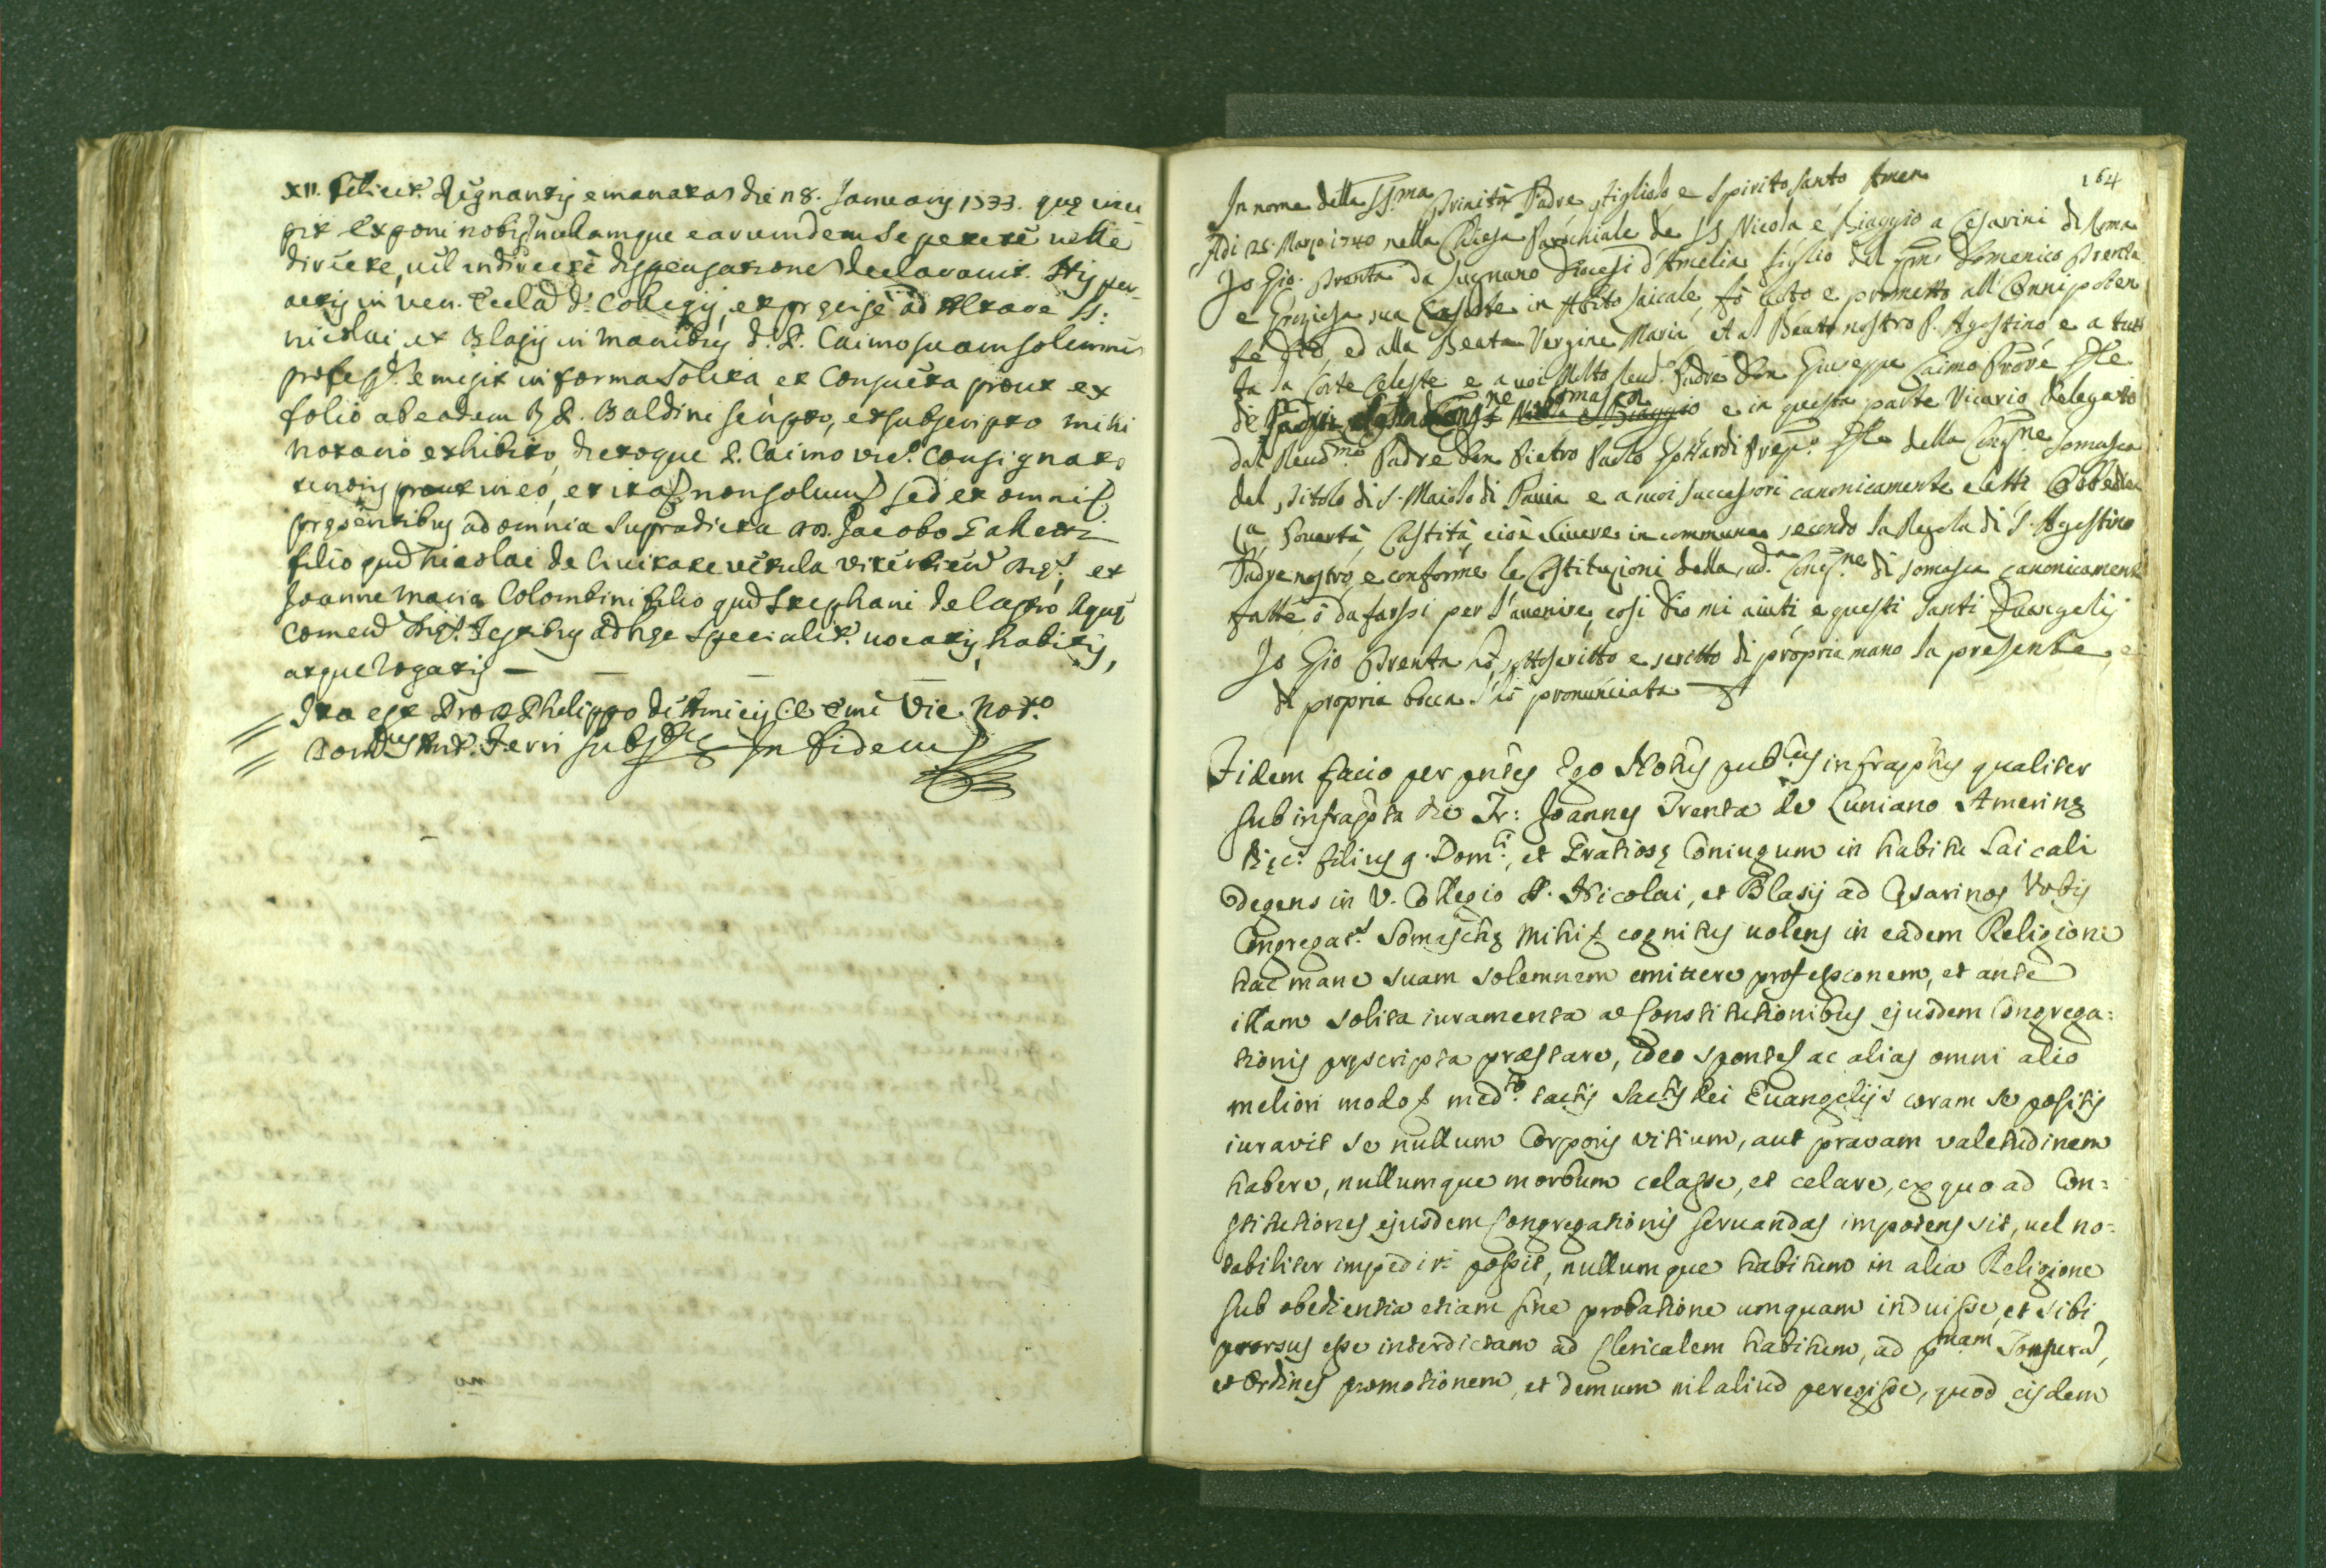 XII. felicit. Regnantis emanatas die 18. Januarij 1733. quę inci
pit Exponi nobis nullamque earumdem se petere velle
directe, vel indirecte dispensationes declaravit. His per-
actis in Ven. Eccla d. Collegij, et precise ad Altare SS:
Nicolai, et Blasij in manibus d. P. Caimo suam solemnem
profess. emisit in forma solita et consueta prout ex
folio ab eadem Baldini scripto, et subscripto mihi
notario exhibito, dictoque P. Caimo consignato
tenoris prout in eo, et ita non solum sed et omnis
pręsentibus ad omnia supradicta D. Jacobo
filio qud Nicolai de Civitate vetula et
Joanne Maria Colombini filio qud Stephani de Castro Aquę
Testibus ad hęc specialit. vocatis, habitis,
atque rogatis —
Ita est Pro D. Philippo de Amicis C. Emi Vic. Not.o
Ant. Ferri In fidem
164
In nome della SS.ma Trinità Padre, Figliolo, e Spirito Santo Amen
Adi 25. Marzo 1740 nella Chiesa Parochiale de SS Nicola e Biaggio a Cesarini di Roma
Io Gio. Trenta da Lugnano Diocesi d'Amelia figlio del qm. Domenico Trenta
e Grazisa sua Consorte in Abito laicale, fò voto e prometto all'Onnipoten
te Dio, ed alla Beata Vergine Maria, et al Beato nostro P. Agostino e a tutt
ta la Corte Celeste e a voi Molto Reud. Padre Don Giuseppe Caimo
di Somasca e in questa parte Vicario Delegato
dal Reud.mo Padre Don Pietro Paolo Gottardi Prep.o Gle della Cong.ne Somasca
del Titolo di S. Maiolo di Pavia e a suoi successori canonicamente eletti Obbedien
za, Povertà, Castità, cioè vivere in commune secondo la Regola di S. Agostino
Padre nostro, e conforme le Costituzioni della sud.a Cong.ne di Somasca canonicament
fatte, ò da farssi per l'avenire, così Dio mi aiuti, e questi Santi Evangelij
Io Gio Trenta hò sottoscritto e scritto di propria mano la presente, e
di propria bocca l'hò pronunciata
Fidem facio per pntes Ego Notus pub.cus infraptus qualiter
sub infrapta die Fr: Joannes Trenta de Luniano Amerinę
Dięc. filius q. Dom.ci, et Gratiosę Coniugum in habitu laicali
degens in V. Collegio SS. Nicolai, et Blasij ad Cęsarinos Urbis
Congregat. Somaschę mihi cognitus volens in eadem Religione
hac mane suam solemnem emittere professionem, et ante
illam solita iuramenta a Constitutionibus ejusdem Congrega:
tionis pręscripta pręstare, ideo sponte ac alias omni alio
meliori modo med.to tactis Sactis Dei Euangelijs coram se positis
iuravit se nullum Corporis vitium, aut pravam valetudinem
habere, nullumque morbum celasse, et celare, ex quo ad Con:
stitutiones ejusdem Congregationis servandas impotens sit, vel no:
tabiliter impediri possit, nullumque habitum in alia Religione
sub obedientia etiam sine probatione umquam induisse, et sibi
prorsus esse interdictam ad Clericalem habitum, ad p.mam Tonsura,
et Ordines promotionem, et demum nil aliud peregisse, quod eisdem